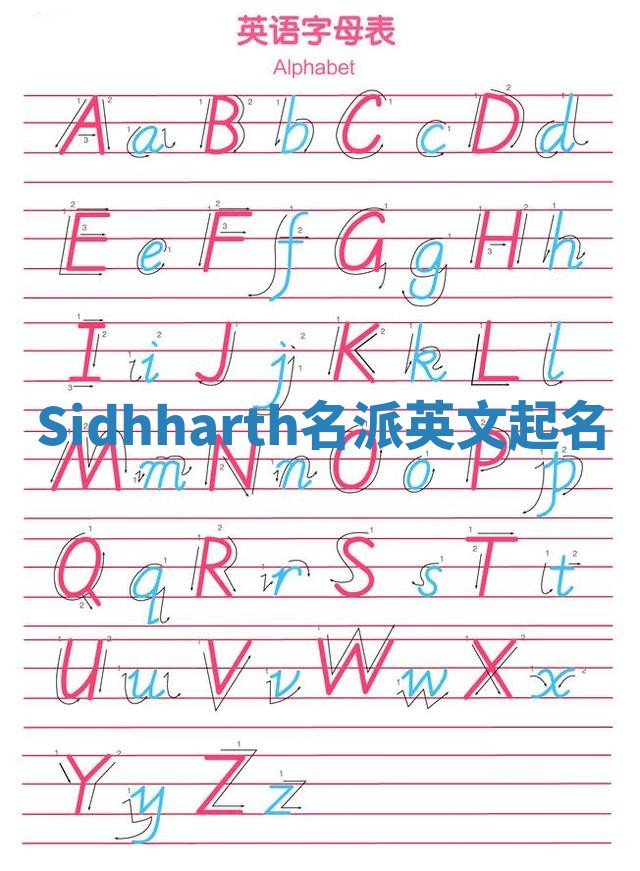 英语字母表
Alphabet
A a B b C c D d
E e F f G g H h
I i J j K k L l
Sidhharth名派英文起名
M m N n O o P p
Q q R r S s T t
U u V v W w X x
Y y Z z